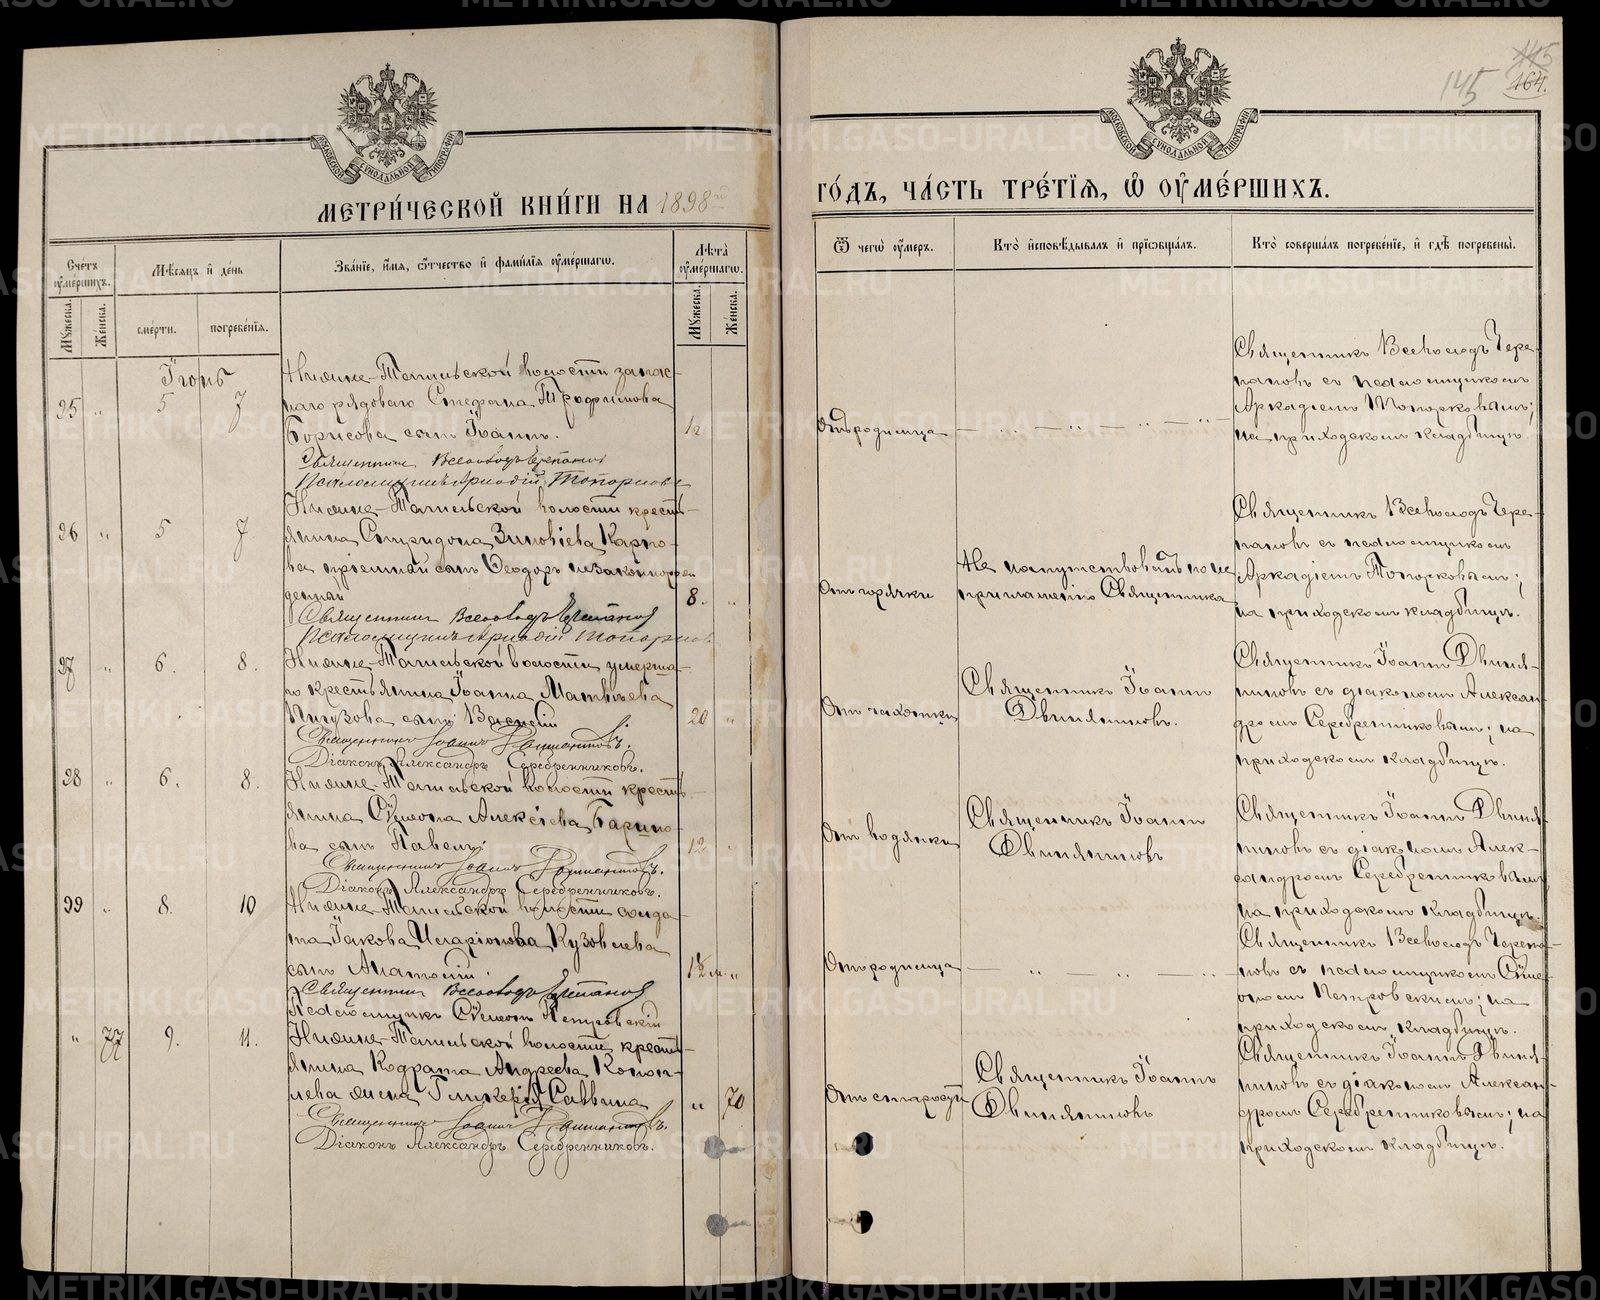 145
164.
145
МЕТРИ́ЧЕСКОЙ КНИ́ГИ НА 1898
ГО́ДЪ, ЧА́СТЬ ТРЕ́ТІѦ, Ѡ҆ ОУ҆МЕ́РШИХЪ.
Сче́тъ оу҆ме́ршихъ.
Мѣ́сѧцъ и҆ де́нь
Зва́нїе, и҆́мѧ, ѻ҆́тчество и҆ фами́лїѧ оу҆ме́ршагѡ.
Лѣ́та оу҆ме́ршагѡ.
Ѿ чегѡ̀ оу҆́меръ.
Кто̀ и҆сповѣ́дывалъ и҆ прїѡбща́лъ.
Кто̀ соверша́лъ погребе́нїе, и҆ гдѣ̀ погребены̀.
Мꙋ́жеска.
Же́нска.
сме́рти.
погребе́нїѧ.
Мꙋ́жеска.
Же́нска.
Іюнь
95 " 5 7
Нижне-Тагильской волости запас-
наго рядоваго Стефана Трофимова
Борисова сынъ Іоаннъ.
Священникъ Всеволодъ Черепановъ
Псаломщикъ Аркадій Топорковъ
Отъ родимца
Священникъ Всеволодъ Чере-
пановъ съ псаломщикомъ
Аркадіемъ Топорковымъ;
на приходскомъ кладбищѣ.
96 " 5 7
Нижне-Тагильской волости кресть-
янина Спиридона Зиновіева Карпо-
ва пріемный сынъ Ѳеодоръ незаконнорож
денный
8. "
Священникъ Всеволодъ Черепановъ
Псаломщикъ Аркадій Топорковъ
Отъ горячки
Не напутствованъ по не
приглашенію Священника
Священникъ Всеволодъ Чере-
пановъ съ псаломщикомъ
Аркадіемъ Топорковымъ;
на приходскомъ кладбищѣ.
97 " 6. 8.
Нижне-Тагильской волости умерша-
го крестьянина Іоанна Матвѣева
Пигузова сынъ Василій
20 "
Священникъ Іоаннъ Двиняниновъ.
Діаконъ Александръ Серебренниковъ.
Отъ чахотки
Священникъ Іоаннъ
Двиняниновъ.
Священникъ Іоаннъ Двиня-
ниновъ съ діакономъ Алексан-
дромъ Серебренниковымъ; на
приходскомъ кладбищѣ.
98 " 6. 8.
Нижне-Тагильской волости кресть-
янина Сѵмеона Алексіева Барано-
ва сынъ Павелъ.
12
Священникъ Іоаннъ Двиняниновъ.
Діаконъ Александръ Серебренниковъ.
Отъ водянки
Священникъ Іоаннъ
Двиняниновъ
Священникъ Іоаннъ Двиня-
ниновъ съ діакономъ Алек-
сандромъ Серебренниковымъ
на приходскомъ кладбищѣ.
99 " 8. 10
Нижне-Тагильской волости солда-
та Іакова Иларіонова Кузовлева
сынъ Анатолій.
Священникъ Всеволодъ Черепановъ
Псаломщикъ Сѵмеонъ Петровскій
Отъ родимца
Священникъ Всеволодъ Черепа-
новъ съ псаломщикомъ Сѵме-
ономъ Петровскимъ; на
приходскомъ кладбищѣ.
" 77 9. 11.
Нижне-Тагильской волости кресть-
янина Кодрата Андреева Коноп-
лева жена Гликерія Саввина
" 70
Священникъ Іоаннъ Двиняниновъ.
Діаконъ Александръ Серебренниковъ.
Отъ старости
Священникъ Іоаннъ
Двиняниновъ
Священникъ Іоаннъ Двиня-
ниновъ съ діакономъ Алексан-
дромъ Серебренниковымъ; на
приходскомъ кладбищѣ.
METRIKI.GASO-URAL.RU